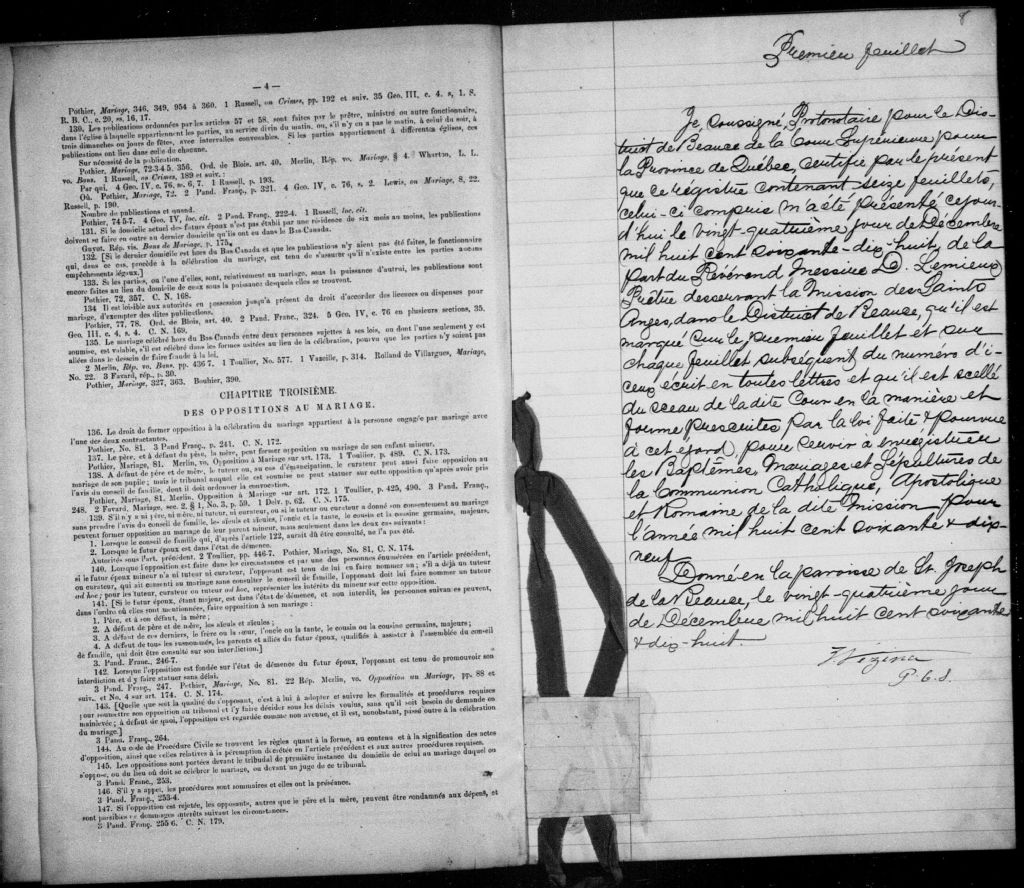 — 4 —
Pothier, Mariage, 346, 349, 954 à 360. 1 Russell, on Crimes, pp. 192 et suiv. 35 Geo. III, c. 4, s, 1. S.
R. B. C., c. 20, ss. 16, 17.
130. Les publications ordonnées par les articles 57 et 58, sont faites par le prêtre, ministre ou autre fonctionnaire,
dans l'église à laquelle appartiennent les parties, au service divin du matin, ou, s'il n'y en a pas le matin, à celui du soir, à
trois dimanches ou jours de fêtes, avec intervalles convenables. Si les parties appartiennent à différentes églises, ces
publications ont lieu dans celle de chacune.
Sur nécessité de la publication.
Pothier, Mariage, 72-3-4 5. 356. Ord. de Blois, art. 40. Merlin, Rép. vo. Mariage, § 4. Wharton, L. L.
vo. Bans. 1 Russell, on Crimes, 189 et suiv. :
Par qui. 4 Geo. IV, c. 76, ss. 6, 7. 1 Russell, p. 193.
Où. Pothier, Mariage, 72. 2 Pand. Franç., p. 321. 4 Geo. IV, c. 76, s. 2. Lewis, on Mariage, 8, 22.
Russell, p. 190.
Nombre de publications et quand.
Pothier, 74 5-7. 4 Geo, IV, loc. cit. 2 Pand. Franç., 222-4. 1 Russell, loc. cit.
131. Si le domicile actuel des futurs époux n'est pas établi par une résidence de six mois au moins, les publications
doivent se faire en outre au dernier domicile qu'ils ont eu dans le Bas-Canada.
Guyot. Rép. vis. Bans de Mariage, p. 175.
132. [Si le dernier domicile est hors du Bas-Canada et que les publications n'y aient pas été faites, le fonctionnaire
qui, dans ce cas, procède à la célébration du mariage, est tenu de s'assurer qu'il n'existe entre les parties aucuns
empêchements légaux.]
133. Si les parties, ou l'une d'elles, sont, relativement au mariage, sous la puissance d'autrui, les publications sont
encore faites au lieu du domicile de ceux sous la puissance desquels elles se trouvent.
Pothier, 72, 357. C. N. 168.
134 Il est loisible aux autorités en possession jusqu'à présent du droit d'accorder des licences ou dispenses pour
mariage, d'exempter des dites publications.
Pothier, 77, 78. Ord. de Blois, art. 40. 2 Pand. Franç., 324. 5 Geo. IV, c. 76 en plusieurs sections, 35.
Geo. III, c. 4, s. 4. C. N. 169.
135. Le mariage célébré hors du Bas-Canada entre deux personnes sujettes à ses lois, ou dont l'une seulement y est
soumise, est valable, s'il est célébré dans les formes usitées au lieu de la célébration, pourvu que les parties n'y soient pas
allées dans le dessein de faire fraude à la loi.
2 Merlin, Rép. vo. Bans, pp. 436 7. 1 Toullier, No. 577. 1 Vazeille, p. 314. Rolland de Villargues, Mariage,
No. 22. 3 Favard, rép., p. 30.
Pothier, Mariage, 327, 363. Bouhier, 390.
CHAPITRE TROISIÈME.
DES OPPOSITIONS AU MARIAGE.
136. Le droit de former opposition à la célébration du mariage appartient à la personne engagée par mariage avec
l'une des deux contractantes.
Pothier, No. 81. 3 Pand Franç., p. 241. C. N. 172.
137. Le père, et à défaut du père, la mère, peut former opposition au mariage de son enfant mineur.
Pothier, Mariage, 81. Merlin, vo. Opposition à Mariage sur art. 173. 1 Toullier, p. 489. C. N. 173.
138. A défaut de père et de mère, le tuteur ou, au cas d'émancipation, le curateur peut aussi faire opposition au
mariage de son pupille; mais le tribunal auquel elle est soumise ne peut statuer sur cette opposition qu'après avoir pris
l'avis du conseil de famille, dont il doit ordonner la convocation.
Pothier, Mariage, 81. Merlin, Opposition à Mariage sur art. 172. 1 Toullier, p. 425, 490. 3 Pand. Franç.,
248. 2 Favard, Mariage, sec. 2, § 1, No. 5, p. 59. 1 Delv. p. 62. C. N. 175.
139. S'il n'y a ni père, ni mère, ni tuteur, ni curateur, ou si le tuteur ou curateur a donné son consentement au mariage
sans prendre l'avis du conseil de famille, les aïeuls et aïeules, l'oncle et la tante, le cousin et la cousine germains, majeurs,
peuvent former opposition au mariage de leur parent mineur, mais seulement dans les deux cas suivants :
1. Lorsque le conseil de famille qui, d'après l'article 122, aurait dû être consulté, ne l'a pas été.
2. Lorsque le futur époux est dans l'état de démence.
Autorités sous l'art. précédent. 2 Toullier, pp. 446-7. Pothier, Mariage, No. 81, C. N. 174.
140. Lorsque l'opposition est faite dans les circonstances et par une des personnes énumérées en l'article précédent,
si le futur époux mineur n'a ni tuteur ni curateur, l'opposant est tenu de lui en faire nommer un ; s'il a déjà un tuteur
ou curateur, qui ait consenti au mariage sans consulter le conseil de famille, l'opposant doit lui faire nommer un tuteur
ad hoc ; pour les tuteur, curateur ou tuteur ad hoc, représenter les intérêts du mineur sur cette opposition.
141. [Si le futur époux, étant majeur, est dans l'état de démence, et non interdit, les personnes suivantes peuvent,
dans l'ordre où elles sont mentionnées, faire opposition à son mariage :
1. Père, et à son défaut, la mère ;
2. A défaut de père et de mère, les aïeuls et aïeules ;
3. A défaut de ces derniers, le frère ou la sœur, l'oncle ou la tante, le cousin ou la cousine germains, majeurs ;
4. A défaut de tous les susnommés, les parents et alliés du futur époux, qualifiés à assister à l'assemblée du conseil
de famille, qui doit être consulté sur son interdiction.]
3. Pand. Franc., 246-7.
142. Lorsque l'opposition est fondée sur l'état de démence du futur époux, l'opposant est tenu de promouvoir son
interdiction et d'y faire statuer sans délai.
3 Pand. Franç., 247. Pothier, Mariage, No. 81. 22 Rép. Merlin, vo. Opposition au Mariage, pp. 88 et
suiv. et No. 4 sur art. 174. C. N. 174.
143. [Quelle que soit la qualité de l'opposant, c'est à lui à adopter et suivre les formalités et procédures requises
pour soumettre son opposition au tribunal et l'y faire décider sous les délais voulus, sans qu'il soit besoin de demande en
mainlevée ; à défaut de quoi, l'opposition est regardée comme non avenue, et il est, nonobstant, passé outre à la célébration
du mariage.]
3 Pand. Franç., 264.
144. Au code de Procédure Civile se trouvent les règles quant à la forme, au contenu et à la signification des actes
d'opposition, ainsi que celles relatives à la péremption décrétée en l'article précédent et aux autres procédures requises.
145. Les oppositions sont portées devant le tribunal de première instance du domicile de celui au mariage duquel on
s'oppose, ou du lieu où doit se célébrer le mariage, ou devant un juge de ce tribunal.
3 Pand. Franc., 253.
146. S'il y a appel, les procédures sont sommaires et elles ont la préséance.
3 Pand. Franç., 253-4.
147. Si l'opposition est rejetée, les opposants, autres que le père et la mère, peuvent être condamnés aux dépens, et
sont passibles de dommages intérêts suivant les circonstances.
3 Pand. Franç. 255 6. C. N. 179.
8
Premier feuillet
Je, soussigné, Protonotaire pour le Dis-
trict de Beauce de la Cour Supérieure pour
la Province de Québec, certifie par le présent
que ce régistre contenant seize feuillets,
celui-ci compris m'a été présenté ce jour-
d'hui le vingt-quatrième jour de Décembre
mil huit cent soixante-dix-huit, de la
part du Révérend Messire D. Lemieux
Prêtre desservant la Mission des Saints
Anges, dans le District de Beauce, qu'il est
marqué sur le premier feuillet et sur
chaque feuillet subséquent du numéro d'i-
ceux écrit en toutes lettres et qu'il est scellé
du sceau de la dite Cour en la manière et
forme prescrites par la loi faite & pourvue
à cet égard, pour servir à enregistrer
les Baptêmes, Mariages et Sépultures de
la Communion Catholique, Apostolique
et Romaine de la dite Mission pour
l'année mil huit cent soixante & dix-
neuf.
Donné en la paroisse de St. Joseph
de la Beauce, le vingt-quatrième jour
de Décembre mil huit cent soixante
& dix-huit.
Vézina
P. C. S.